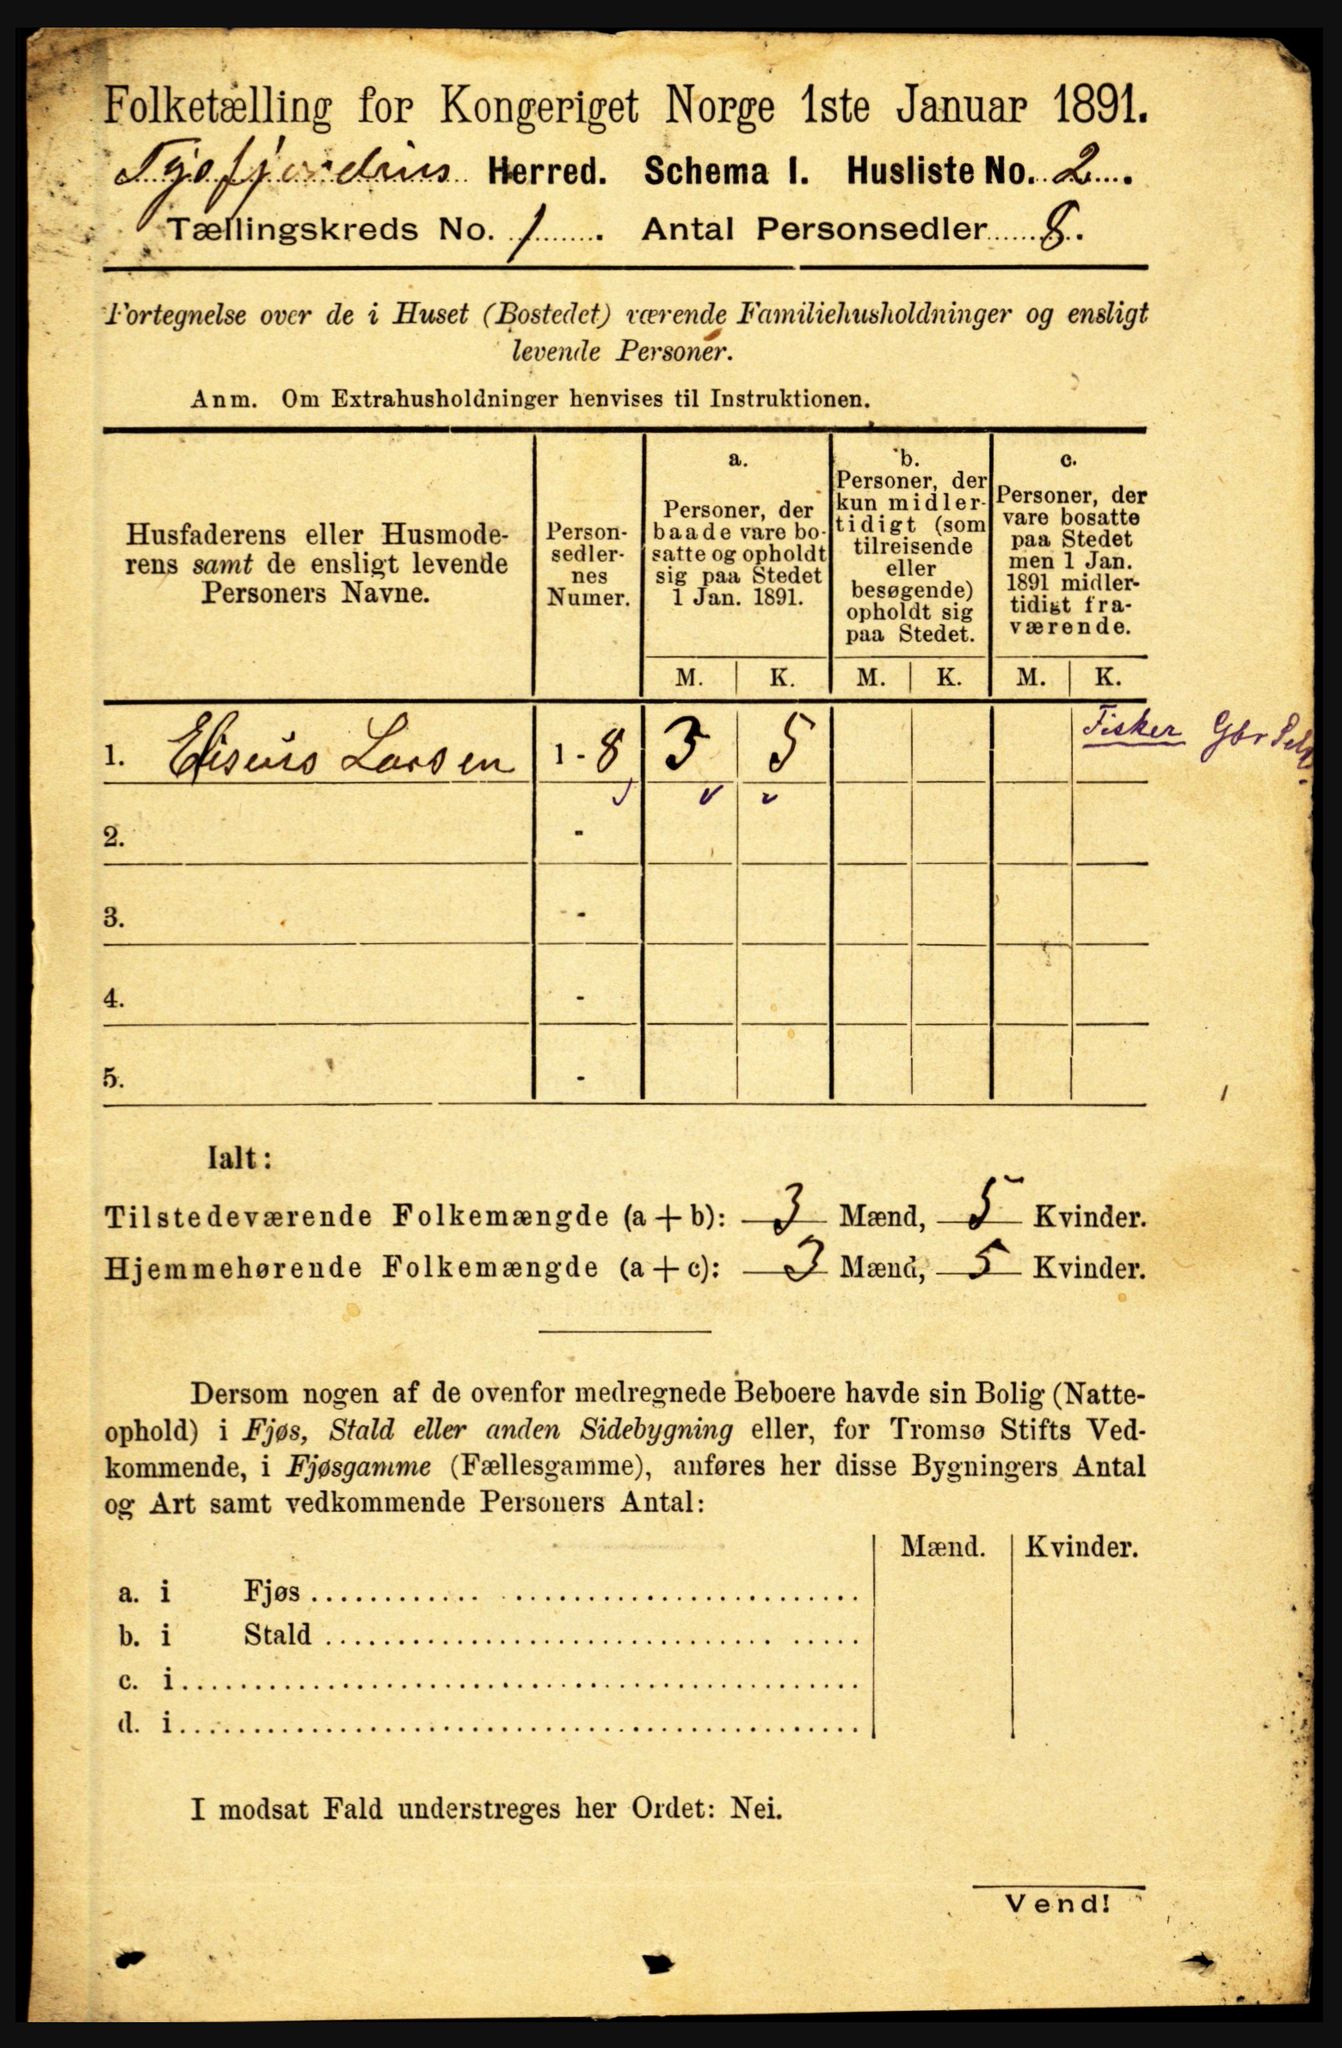 Folketælling for Kongeriget Norge 1ste Januar 1891.
Tysfjordens Herred. Schema I. Husliste No. 2.
Tællingskreds No. 1. Antal Personsedler 8.
Fortegnelse over de i Huset (Bostedet) værende Familiehusholdninger og ensligt
levende Personer.
Anm. Om Extrahusholdninger henvises til Instruktionen.
Husfaderens eller Husmode-
rens samt de ensligt levende
Personers Navne.
Person-
sedler-
nes
Numer.
a.
Personer, der
baade vare bo-
satte og opholdt
sig paa Stedet
1 Jan. 1891.
b.
Personer, der
kun midler-
tidigt (som
tilreisende
eller
besøgende)
opholdt sig
paa Stedet.
c.
Personer, der
vare bosatte
paa Stedet
men 1 Jan.
1891 midler-
tidigt fra-
værende.
M. K. M. K. M. K.
1. Eliseus Larsen 1 - 8 3 5 Fisker Gbr Selv
2. -
3. -
4. -
5. -
Ialt:
Tilstedeværende Folkemængde (a + b): 3 Mænd, 5 Kvinder.
Hjemmehørende Folkemængde (a + c): 3 Mænd, 5 Kvinder.
Dersom nogen af de ovenfor medregnede Beboere havde sin Bolig (Natte-
ophold) i Fjøs, Stald eller anden Sidebygning eller, for Tromsø Stifts Ved-
kommende, i Fjøsgamme (Fællesgamme), anføres her disse Bygningers Antal
og Art samt vedkommende Personers Antal:
Mænd. Kvinder.
a. i Fjøs
b. i Stald
c. i
d. i
I modsat Fald understreges her Ordet: Nei.
Vend!